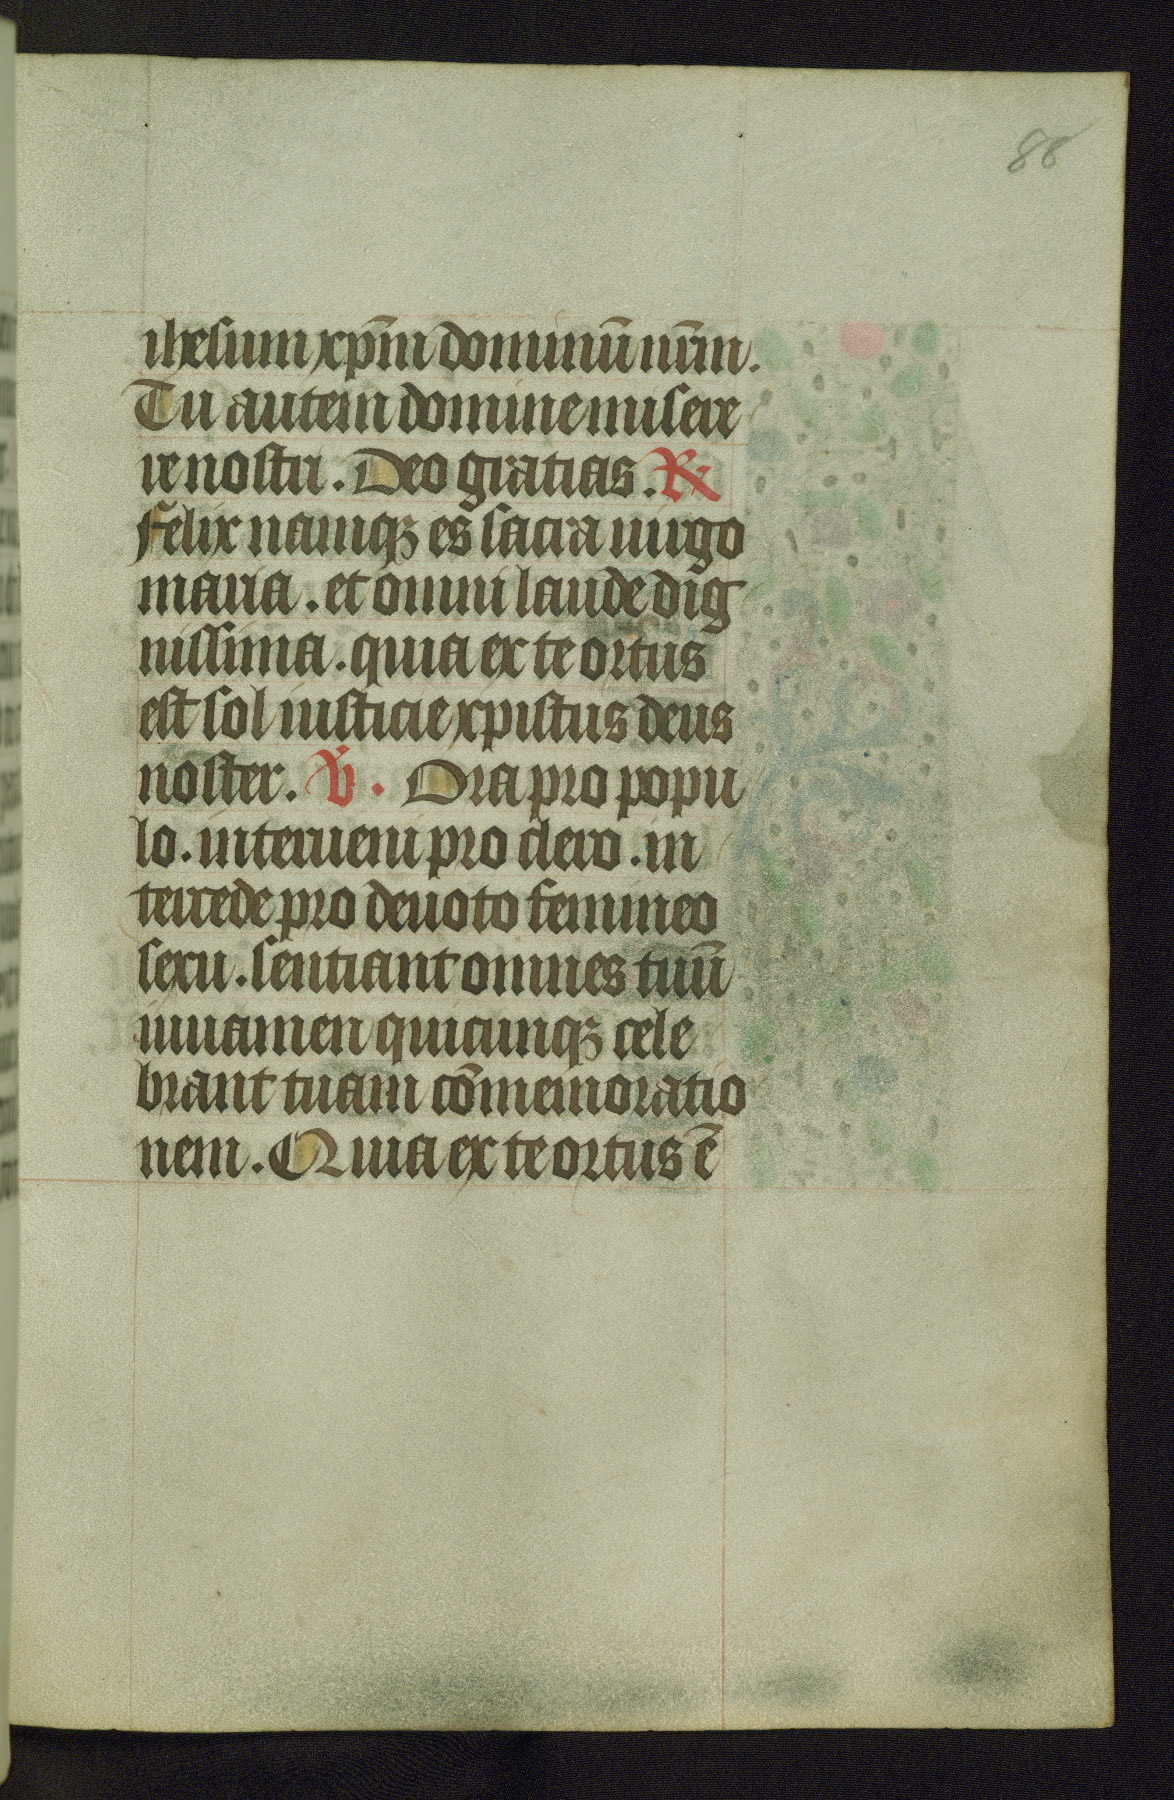 86
ihesum xp̄m dominū nr̄m.
Tu autem domine misere
re nostri. Deo gratias. ℟
Felix namqꝫ es sacra uirgo
maria. et omni laude dig
nissima. quia ex te ortus
est sol iusticie xpistus deus
noster. ℣. Ora pro popu
lo. interueni pro clero. in
tercede pro deuoto femineo
sexu. sentiant omnes tuū
iuuamen quicunqꝫ cele
brant tuam cōmemoratio
nem. Quia ex te ortus ē